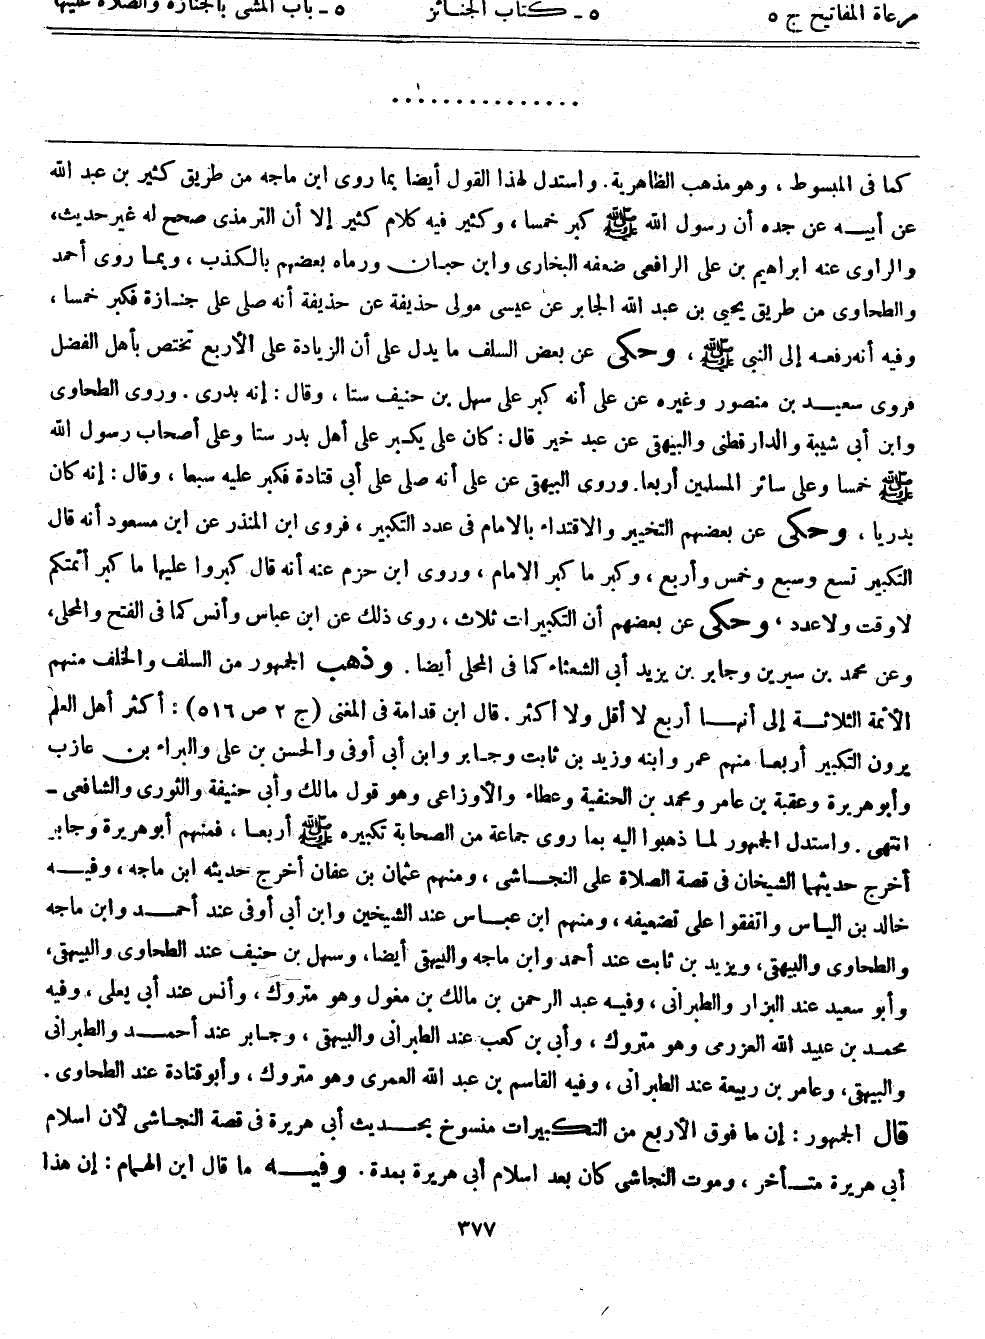 مرعاة المفاتيح ج ٥ ٥ ـ كتاب الجنائز ٥ ـ باب المشى بالجنازة والصلاة عليها
كما فى المبسوط ، وهو مذهب الظاهرية. واستدل لهذا القول أيضا بما روى ابن ماجه من طريق كثير بن عبد الله
عن أبيه عن جده أن رسول الله ﷺ كبر خمسا ، وكثير فيه كلام كثير إلا أن الترمذى صحح له غير حديث،
والراوى عنه ابراهيم بن على الرافعى ضعفه البخارى وابن حبان ورماه بعضهم بالكذب ، وبما روى أحمد
والطحاوى من طريق يحيى بن عبد الله الجابر عن عيسى مولى حذيفة عن حذيفة أنه صلى على جنازة فكبر خمسا ،
وفيه أنه رفعه إلى النبى ﷺ ، وحكى عن بعض السلف ما يدل على أن الزيادة على الأربع تختص بأهل الفضل
فروى سعيد بن منصور وغيره عن على أنه كبر على سهل بن حنيف ستا ، وقال : إنه بدرى . وروى الطحاوى
وابن أبى شيبة والدارقطنى والبيهقى عن عبد خير قال : كان على يكبر على أهل بدر ستا وعلى أصحاب رسول الله
ﷺ خمسا وعلى سائر المسلمين أربعا. وروى البيهقى عن على أنه صلى على أبى قتادة فكبر عليه سبعا ، وقال : إنه كان
بدريا ، وحكى عن بعضهم التخيير والاقتداء بالامام فى عدد التكبير ، فروى ابن المنذر عن ابن مسعود أنه قال
التكبير تسع وسبع وخمس وأربع ، وكبر ما كبر الامام ، وروى ابن حزم عنه أنه قال كبروا عليها ما كبر أئمتكم
لاوقت ولا عدد ، وحكى عن بعضهم أن التكبيرات ثلاث ، روى ذلك عن ابن عباس وأنس كما فى الفتح والمحلى،
وعن محمد بن سيرين وجابر بن يزيد أبى الشعثاء كما فى المحلى أيضا . وذهب الجمهور من السلف والخلف منهم
الأئمة الثلاثة إلى أنها أربع لا أقل ولا أكثر . قال ابن قدامة فى المغنى (ج ٢ ص ٥١٦) : أكثر أهل العلم
يرون التكبير أربعا منهم عمر وابنه وزيد بن ثابت وجابر وابن أبى أوفى والحسن بن على والبراء بن عازب
وأبوهريرة وعقبة بن عامر ومحمد بن الحنفية وعطاء والأوزاعى وهو قول مالك وأبى حنيفة والثورى والشافعى ـ
انتهى . واستدل الجمهور لما ذهبوا اليه بما روى جماعة من الصحابة تكبيره ﷺ أربعا ، فمنهم أبوهريرة وجابر
أخرج حديثهما الشيخان فى قصة الصلاة على النجاشى ، ومنهم عثمان بن عفان أخرج حديثه ابن ماجه ، وفيه
خالد بن الياس واتفقوا على تضعيفه ، ومنهم ابن عباس عند الشيخين وابن أبى أوفى عند أحمد وابن ماجه
والطحاوى والبيهقى، ويزيد بن ثابت عند أحمد وابن ماجه والبيهقى أيضا، وسهل بن حنيف عند الطحاوى والبيهقى،
وأبو سعيد عند البزار والطبرانى ، وفيه عبد الرحمن بن مالك بن مغول وهو متروك ، وأنس عند أبى يعلى ، وفيه
محمد بن عبيد الله العزرمى وهو متروك ، وأبى بن كعب عند الطبرانى والبيهقى ، وجابر عند أحمد والطبرانى
والبيهقى، وعامر بن ربيعة عند الطبرانى ، وفيه القاسم بن عبد الله العمرى وهو متروك ، وأبوقتادة عند الطحاوى .
قال الجمهور : إن ما فوق الأربع من التكبيرات منسوخ بحديث أبى هريرة فى قصة النجاشى لأن اسلام
أبى هريرة متأخر ، وموت النجاشى كان بعد اسلام أبى هريرة بمدة . وفيه ما قال ابن الهمام : إن هذا
٣٧٧